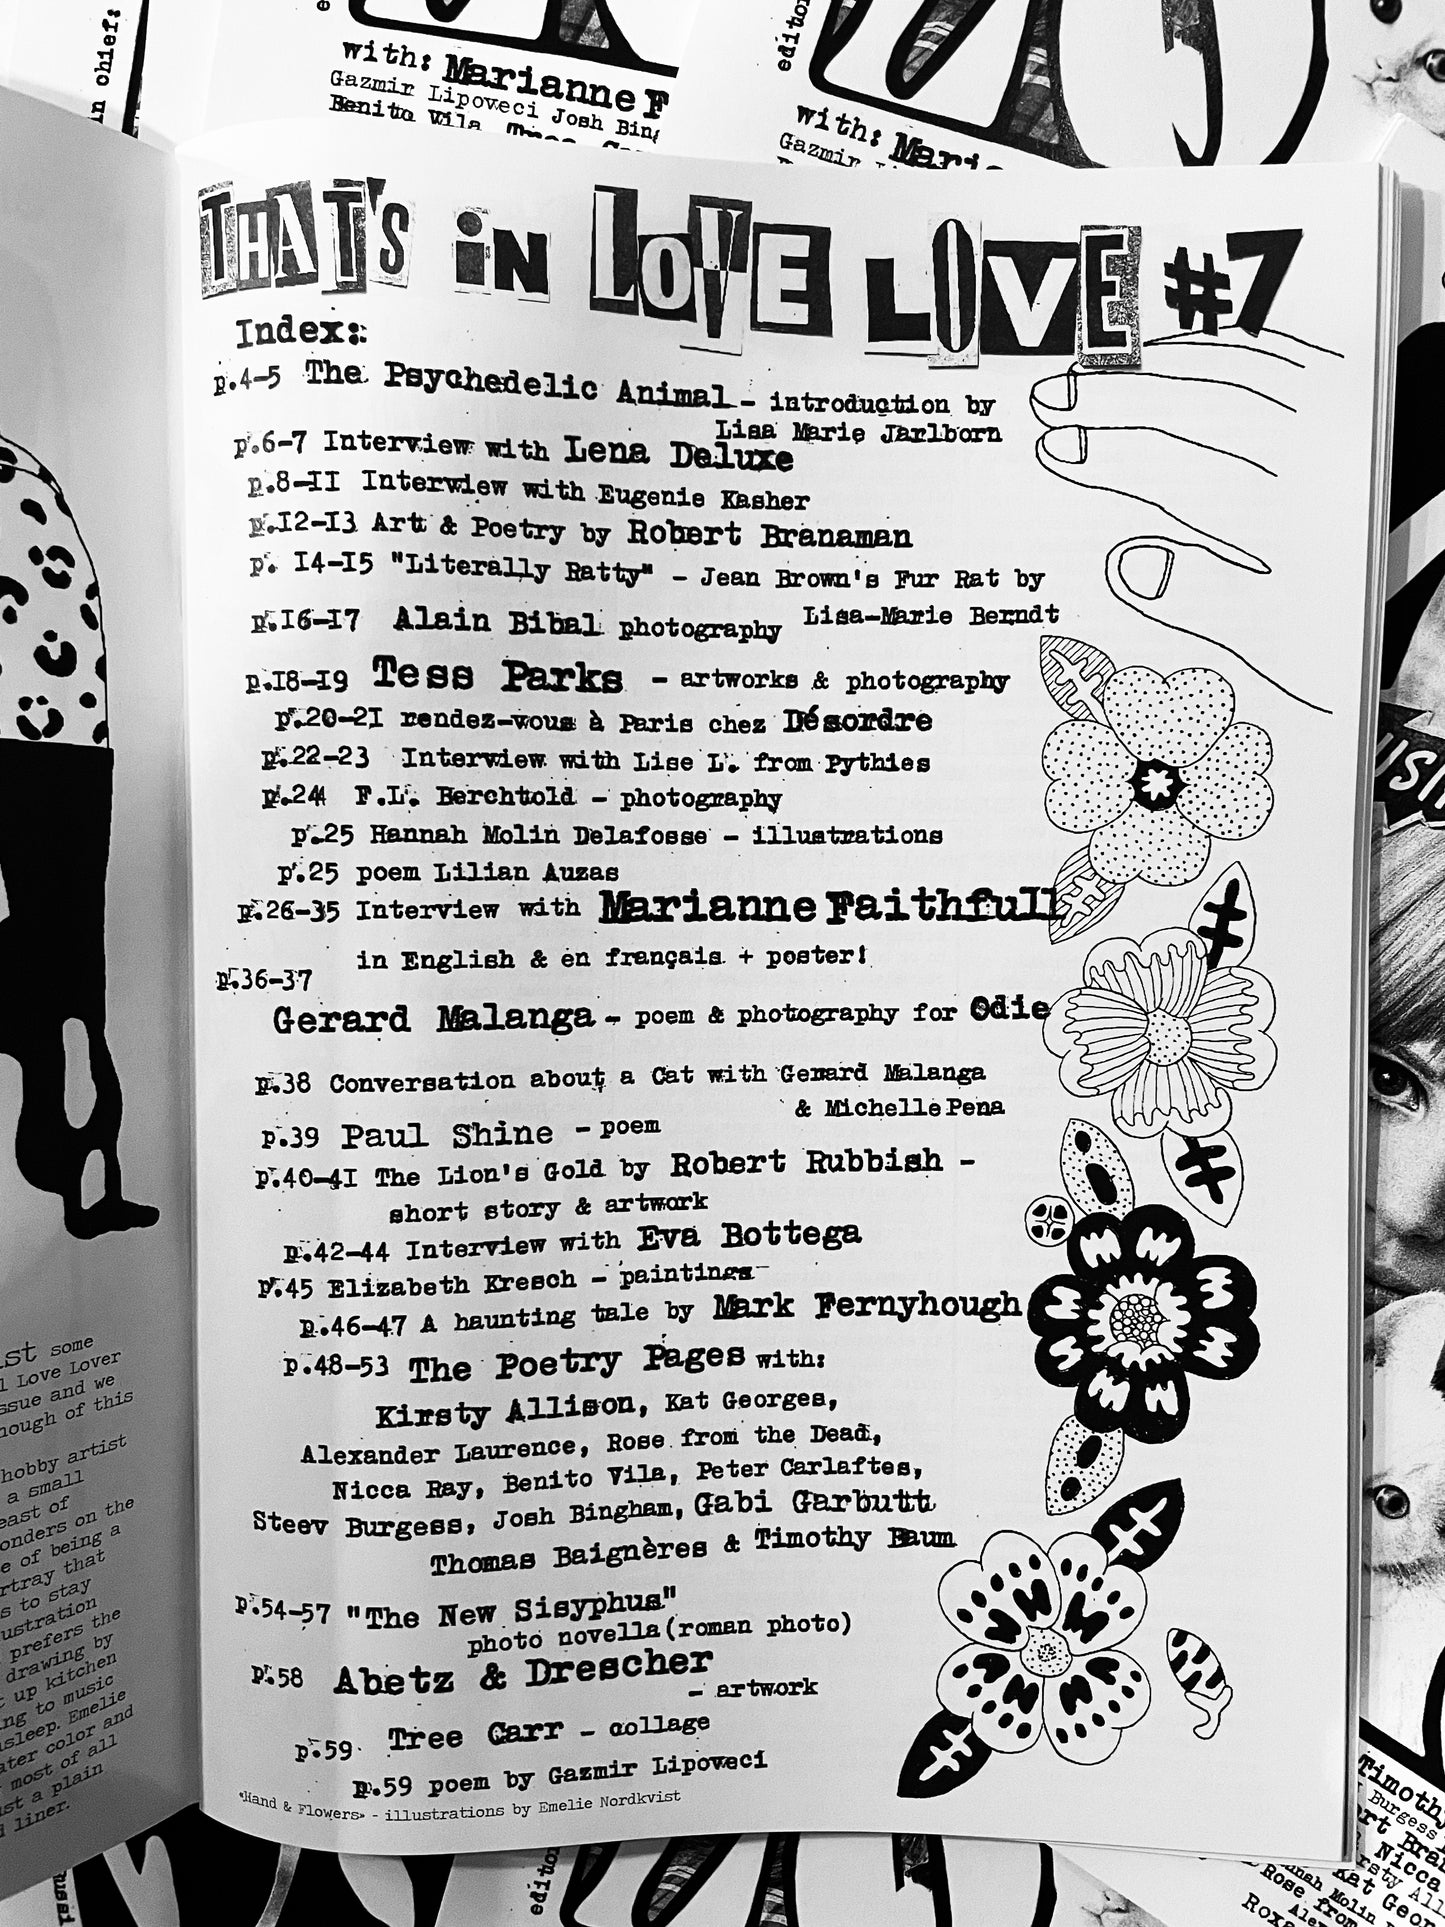 in chief:
with: Marianne F
Gazmir Lipoveci Josh Bing
Benito Vila
with: Maria
Gazmir
THAT'S iN LOVE LOVE #7
Index:
p.4-5 The Psychedelic Animal - introduction by
Lisa Marie Jarlborn
p.6-7 Interview with Lena Deluxe
p.8-II Interview with Eugenie Kasher
p.I2-I3 Art & Poetry by Robert Branaman
p. I4-I5 "Literally Ratty" - Jean Brown's Fur Rat by
Lisa-Marie Berndt
p.I6-I7 Alain Bibal photography
p.I8-I9 Tess Parks - artworks & photography
p.20-2I rendez-vous à Paris chez Désordre
p.22-23 Interview with Lise L. from Pythies
p.24 F.L. Berchtold - photography
p.25 Hannah Molin Delafosse - illustrations
p.25 poem Lilian Auzas
p.26-35 Interview with Marianne Faithfull
in English & en français + poster!
p.36-37
Gerard Malanga - poem & photography for Odie
p.38 Conversation about a Cat with Gerard Malanga
& Michelle Pena
p.39 Paul Shine - poem
p.40-4I The Lion's Gold by Robert Rubbish -
short story & artwork
p.42-44 Interview with Eva Bottega
p.45 Elizabeth Kresch - paintings
p.46-47 A haunting tale by Mark Fernyhough
p.48-53 The Poetry Pages with:
Kirsty Allison, Kat Georges,
Alexander Laurence, Rose from the Dead,
Nicca Ray, Benito Vila, Peter Carlaftes,
Steev Burgess, Josh Bingham, Gabi Garbutt
Thomas Baignères & Timothy Baum
p.54-57 "The New Sisyphus"
photo novella (roman photo)
p.58 Abetz & Drescher
- artwork
p.59 Tree Carr - collage
p.59 poem by Gazmir Lipoveci
«Hand & Flowers» - illustrations by Emelie Nordkvist
some
Love Lover
issue and we
of this
hobby artist
a small
east of
onders on the
e of being a
that
s to stay
prefers the
drawing by
up kitchen
to music
asleep. Emelie
color and
most of all
a plain
liner.
Timothy
Burgess
Nicca
Kat Geor
Rose from